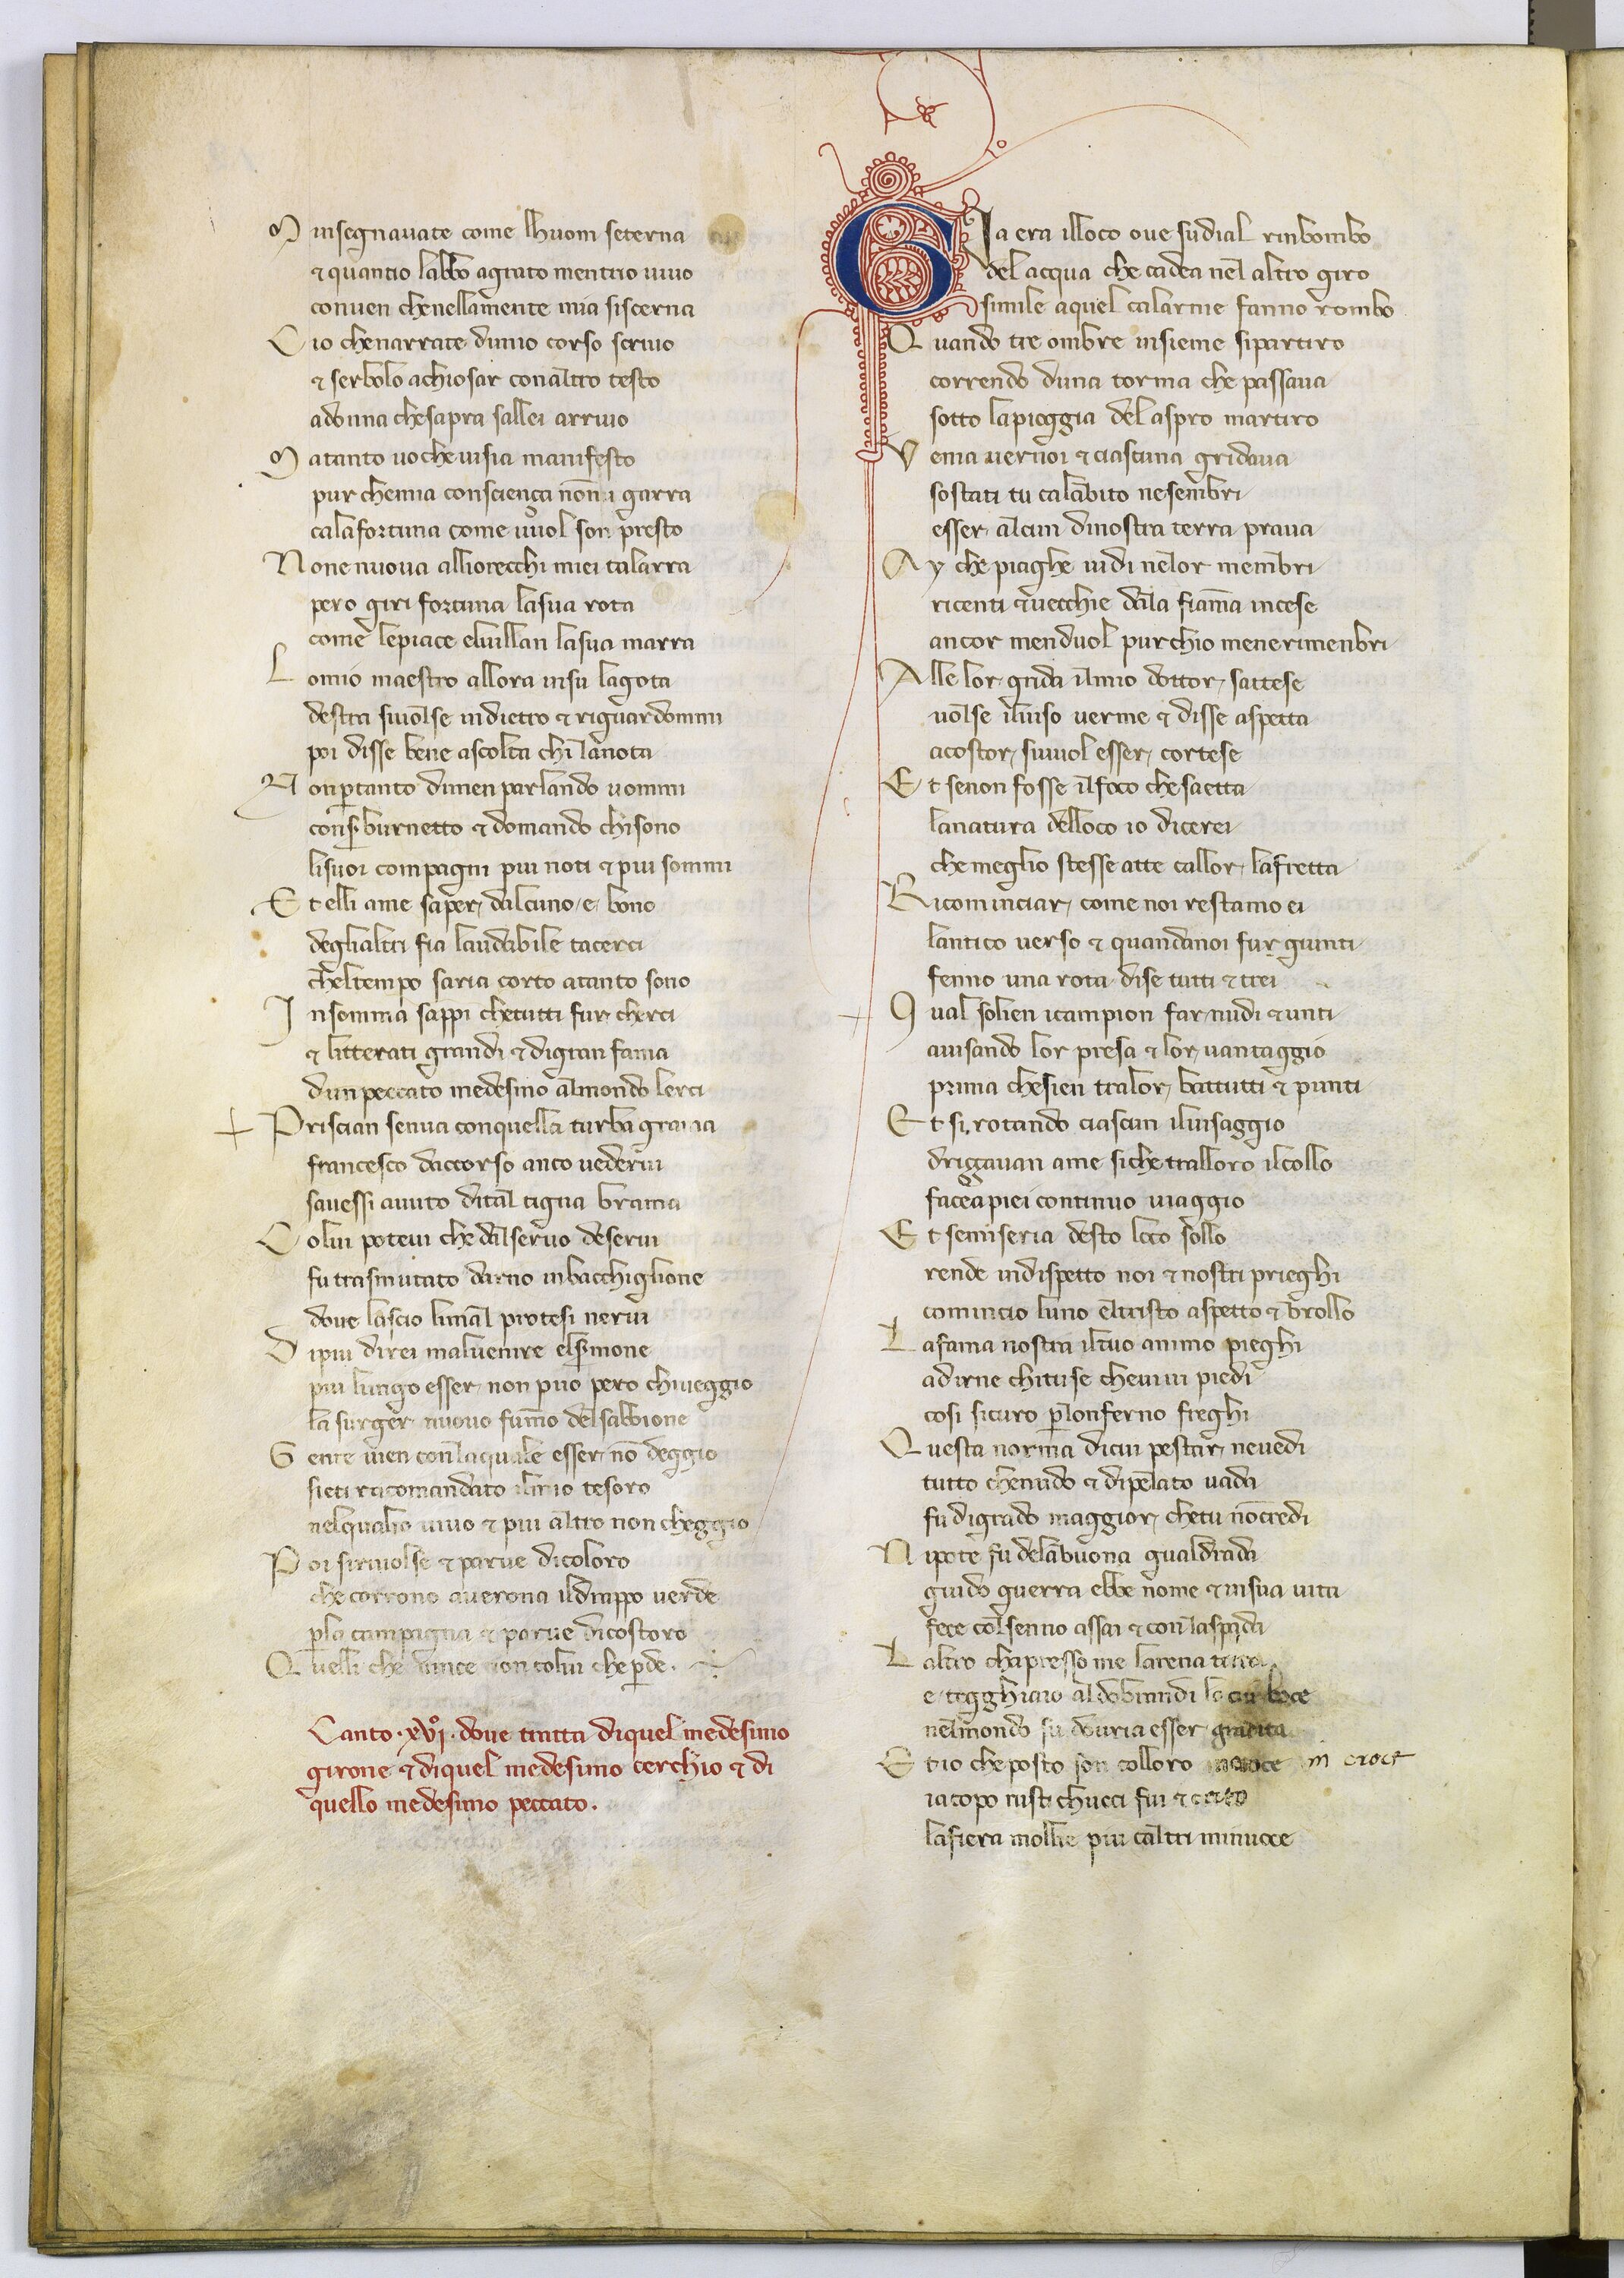 M insegnauate come lhuom seterna
& quantio labbo agrato mentrio uiuo
conuen chenellamente mia siscerna
C io chenarrate dimio corso scriuo
& serbolo achiosar conaltro testo
adonna chesapra sallei arriuo
M atanto uo cheuisia manifesto
pur chemia consciença non garra
calafortuna come uuol son presto
N one nuoua alliorecchi miei talarra
pero giri fortuna lasua rota
come lepiace eluillan lasua marra
L omio maestro allora insu lagota
destra siuolse indietro & riguardommi
poi disse bene ascolta chi lanota
N onptanto dimen parlando uommi
conser burnetto & domando chisono
lisuoi compagni piu noti & piu sommi
E t elli ame saper dalcuno e bono
deglialtri fia laudabile tacerci
cheltempo saria corto atanto sono
I nsomma sappi chetutti fur cherci
& litterati grandi & digran fama
dunpeccato medesmo almondo lerci
Priscian senua conquella turba grama
francesco daccorso anco uederui
sauessi auuto dital tigna brama
C olui poteui che dalseruo deserui
fu trasmutato darno inbacchiglione
doue lascio limal protesi nerui
D ipiu direi maluenire elsermone
piu lungo esser non puo pero chiueggio
la surger nuouo fummo delsabbione
G ente uien conlaquale esser no deggio
sieti racomandato ilmio tesoro
nelqualio uiuo & piu altro non cheggio
P oi siriuolse & parue dicoloro
che corrono auerona ildrappo uerde
pla campagna & parue dicostoro
Q uelli che uince non colui chepde.
Canto .xvi. doue tratta diquel medesimo
girone & diquel medesimo cerchio & di
quello medesimo peccato.
GIa era illoco oue sudial rinbombo
del acqua che cadea nel altro giro
simile aquel calarnie fanno rombo
Q uando tre ombre insieme sipartiro
correndo duna torma che passaua
sotto lapioggia del aspro martiro
V enia uernoi & ciascuna gridaua
sostati tu calabito nesembri
esser alcun dinostra terra praua
A y che piaghe uidi nelor membri
ricenti & uecchie dala fiamma incese
ancor menduol pur chio menerimenbri
A lle lor grida ilmio dottor sattese
uolse iluiso uerme & disse aspetta
acostor siuuol esser cortese
E t senon fosse ilfoco che saetta
lanatura delloco io dicerei
che meglio stesse atte callor lafretta
R icominciar come noi restamo ei
lantico uerso & quandanoi fur giunti
fenno una rota dise tutti & trei
Q ual solien icampion far nudi & unti
auisando lor presa & lor uantaggio
prima chesien tralor battutti & punti
E t si rotando ciascun iluisaggio
driççauan ame siche tralloro ilcollo
facea piei continuo uiaggio
E t semiseria desto loco sollo
rende indispetto noi & nostri prieghi
comincio luno eltristo aspetto & brollo
L afama nostra iltuo animo pieghi
adirne chituse cheuiui piedi
cosi sicuro plonferno freghi
Q uesta norma dicui pestar neuedi
tutto chenudo & dipelato uada
fu digrado maggior chetu nocredi
N ipote fu delabuona gualdrada
guido guerra ebbe nome & insua uita
fece colsenno assai & conlaspada
L altro chapresso me larena
e tegghiaio aldobrandi la cui boce
nelmondo su douria esser gradita
E tio cheposto son colloro in croce
iacopo rusti chucci fui & certo
lafiera mollie piu caltri minuoce